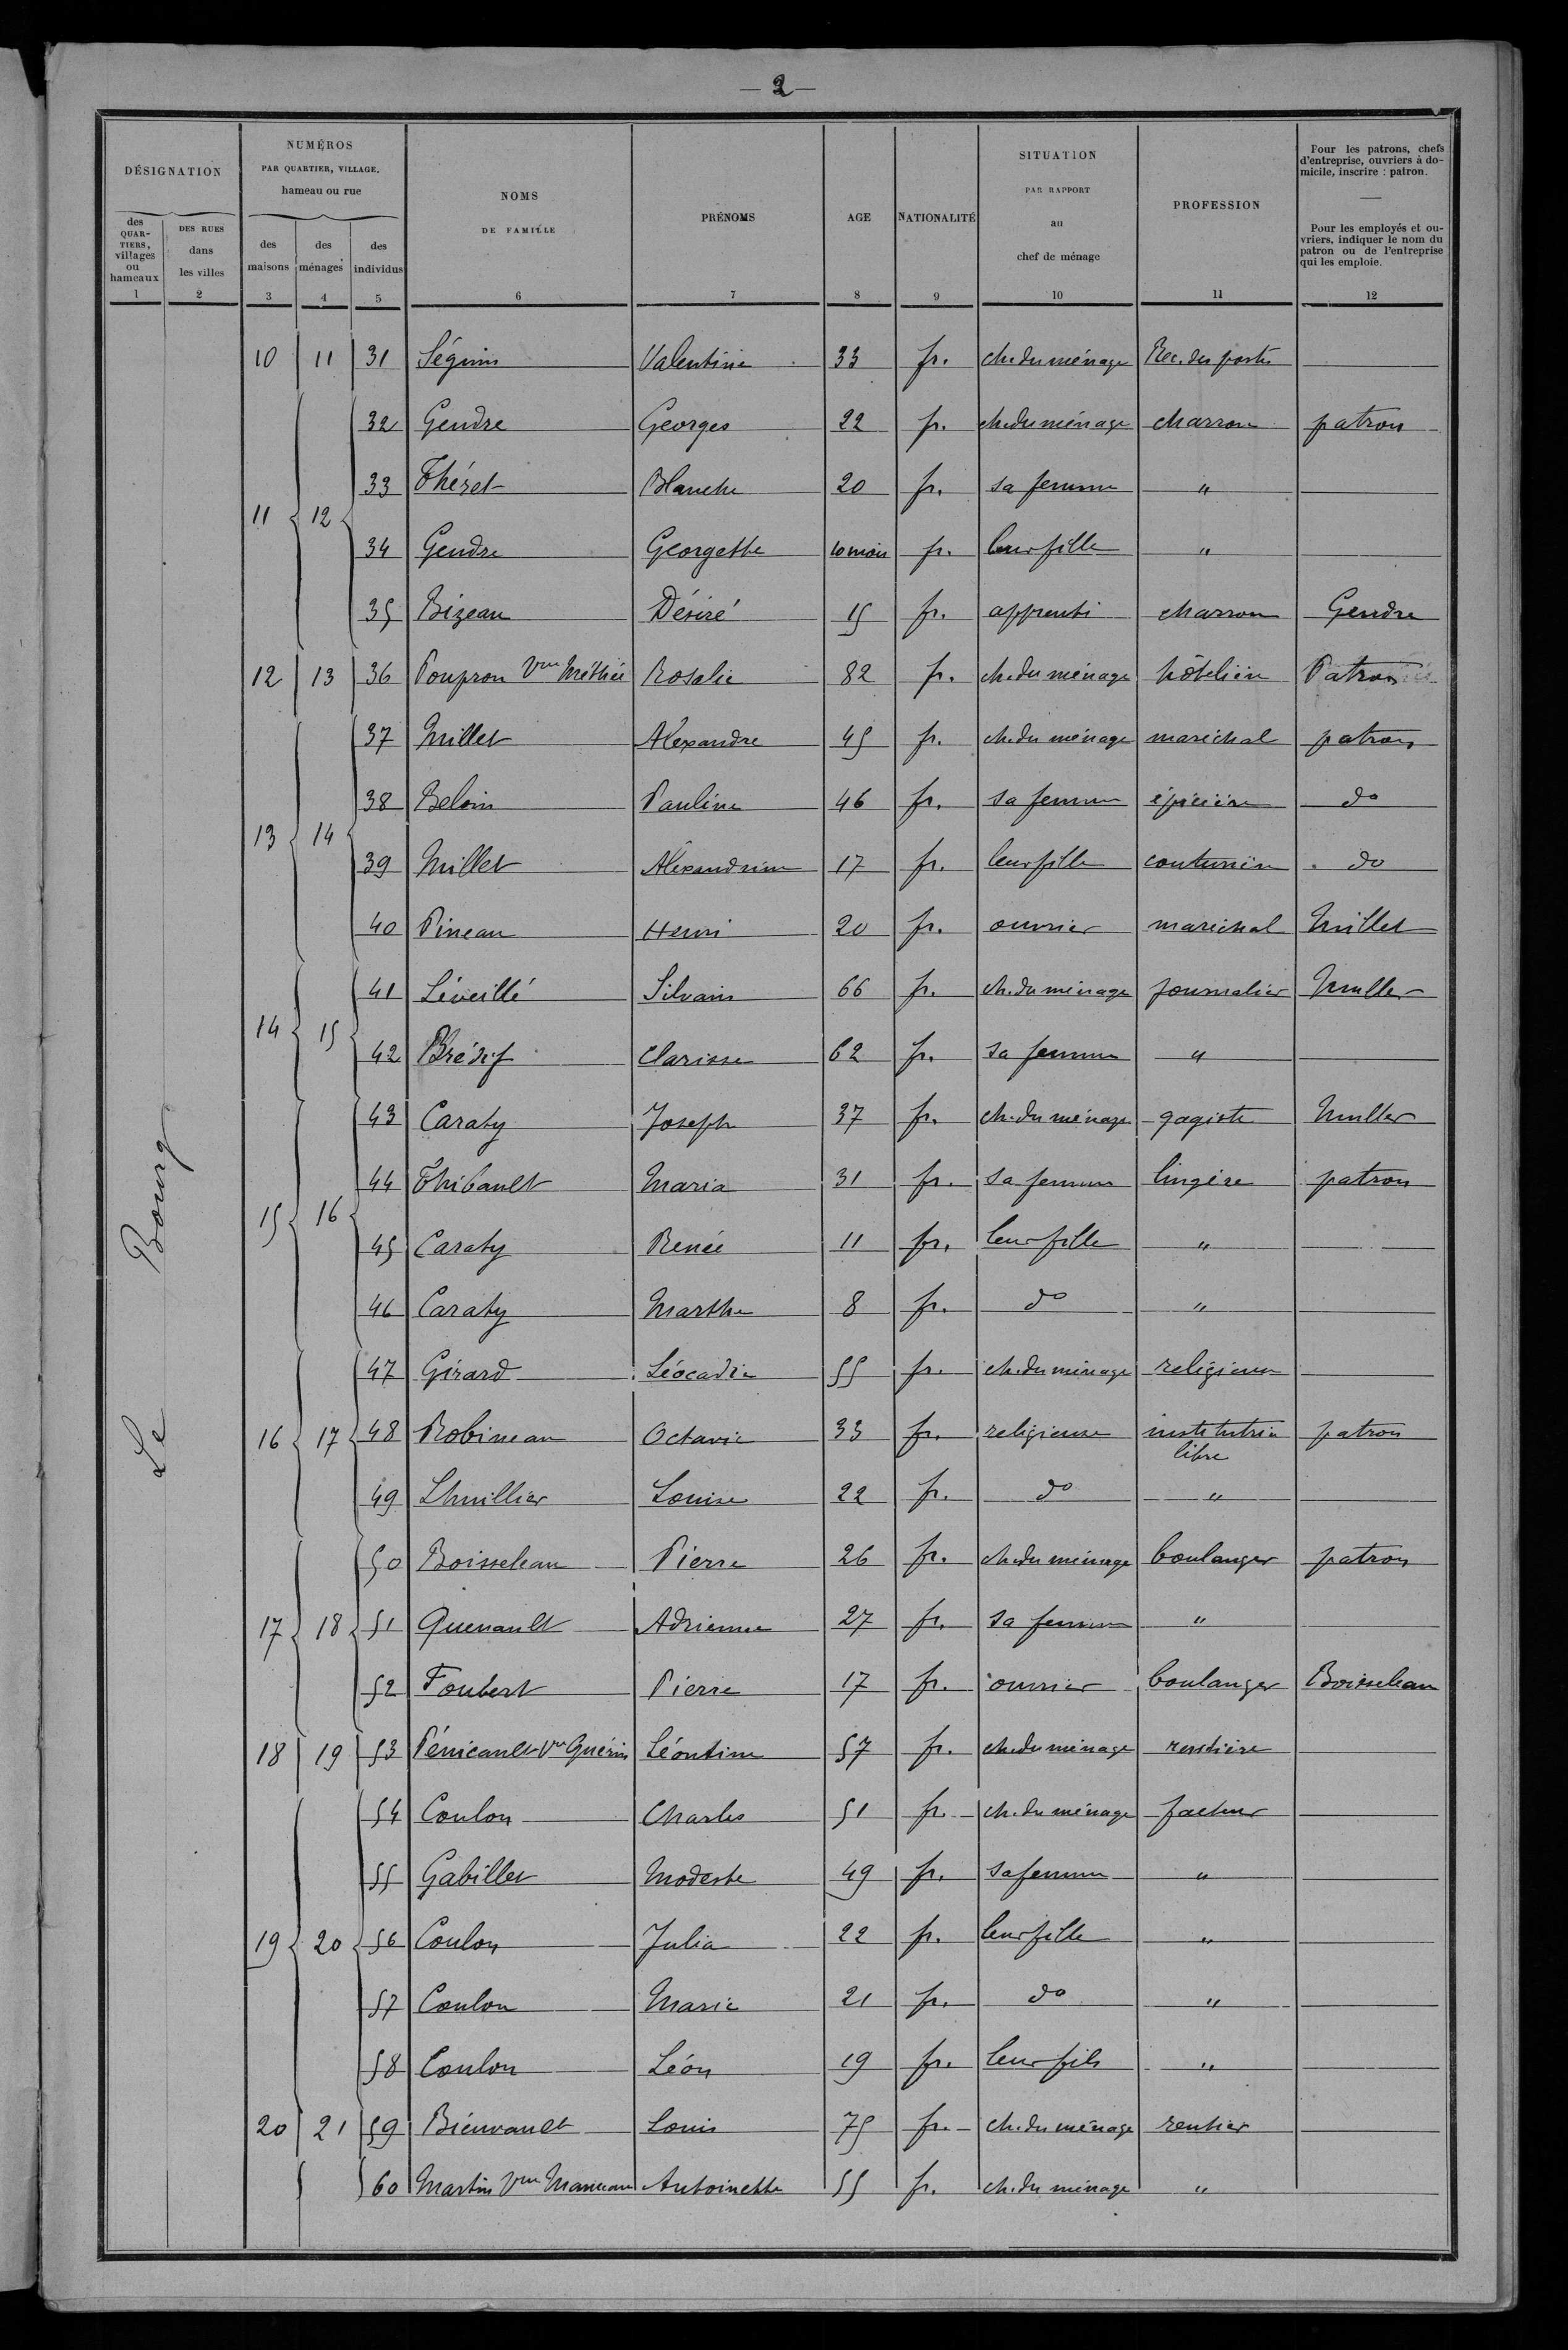 — 2 —
DÉSIGNATION
NUMÉROS
PAR QUARTIER, VILLAGE,
hameau ou rue
NOMS
DE FAMILLE
PRÉNOMS
AGE
NATIONALITÉ
SITUATION
PAR RAPPORT
au
chef de ménage
PROFESSION
Pour les patrons, chefs
d'entreprise, ouvriers à do-
micile, inscrire : patron.
Pour les employés et ou-
vriers, indiquer le nom du
patron ou de l'entreprise
qui les emploie.
des
QUAR-
TIERS,
villages
ou
hameaux
DES RUES
dans
les villes
des
maisons
des
ménages
des
individus
1 2 3 4 5 6 7 8 9 10 11 12
Le Bourg
10 11 31 Séguin Valentine 33 fr. ch. du ménage Rec. des postes
32 Gendre Georges 22 fr. ch. du ménage charron patron
33 Théret Blanche 20 fr. sa femme "
11 12
34 Gendre Georgette 10 mois fr. leur fille "
35 Bizeau Désiré 15 fr. apprenti charron Gendre
12 13 36 Poupron Vve Méthié Rosalie 82 fr. ch. du ménage hôtelière Patron
37 Millet Alexandre 45 fr. ch. du ménage maréchal patron
38 Beloin Pauline 46 fr. sa femme épicière do
13 14
39 Millet Alexandrine 17 fr. leur fille couturière do
40 Pineau Henri 20 fr. ouvrier maréchal Millet
41 Léveillé Silvain 66 fr. ch. du ménage journalier Muller
14 15
42 Brédif Clarisse 62 fr. sa femme "
43 Caraty Joseph 37 fr. ch. du ménage gagiste Muller
44 Thibault Maria 31 fr. sa femme lingère patron
15 16
45 Caraty Renée 11 fr. leur fille "
46 Caraty Marthe 8 fr. do "
47 Girard Léocadie 55 fr. ch. du ménage religieuse
16 17 48 Robineau Octavie 33 fr. religieuse institutrice patron
libre
49 Lhuillier Louise 22 fr. do "
50 Boisseleau Pierre 26 fr. ch. du ménage boulanger patron
17 18 51 Quenault Adrienne 27 fr. sa femme "
52 Foubert Pierre 17 fr. ouvrier boulanger Boisseleau
18 19 53 Pénicault Vve Guérin Léontine 57 fr. ch. du ménage rentière
54 Coulon Charles 51 fr. ch. du ménage facteur
55 Gabillet Modeste 49 fr. sa femme "
19 20 56 Coulon Julia 22 fr. leur fille "
57 Coulon Marie 21 fr. do "
58 Coulon Léon 19 fr. leur fils "
20 21 59 Bienvault Louis 75 fr. ch. du ménage rentier
60 Martin Vve Manceau Antoinette 55 fr. ch. du ménage "